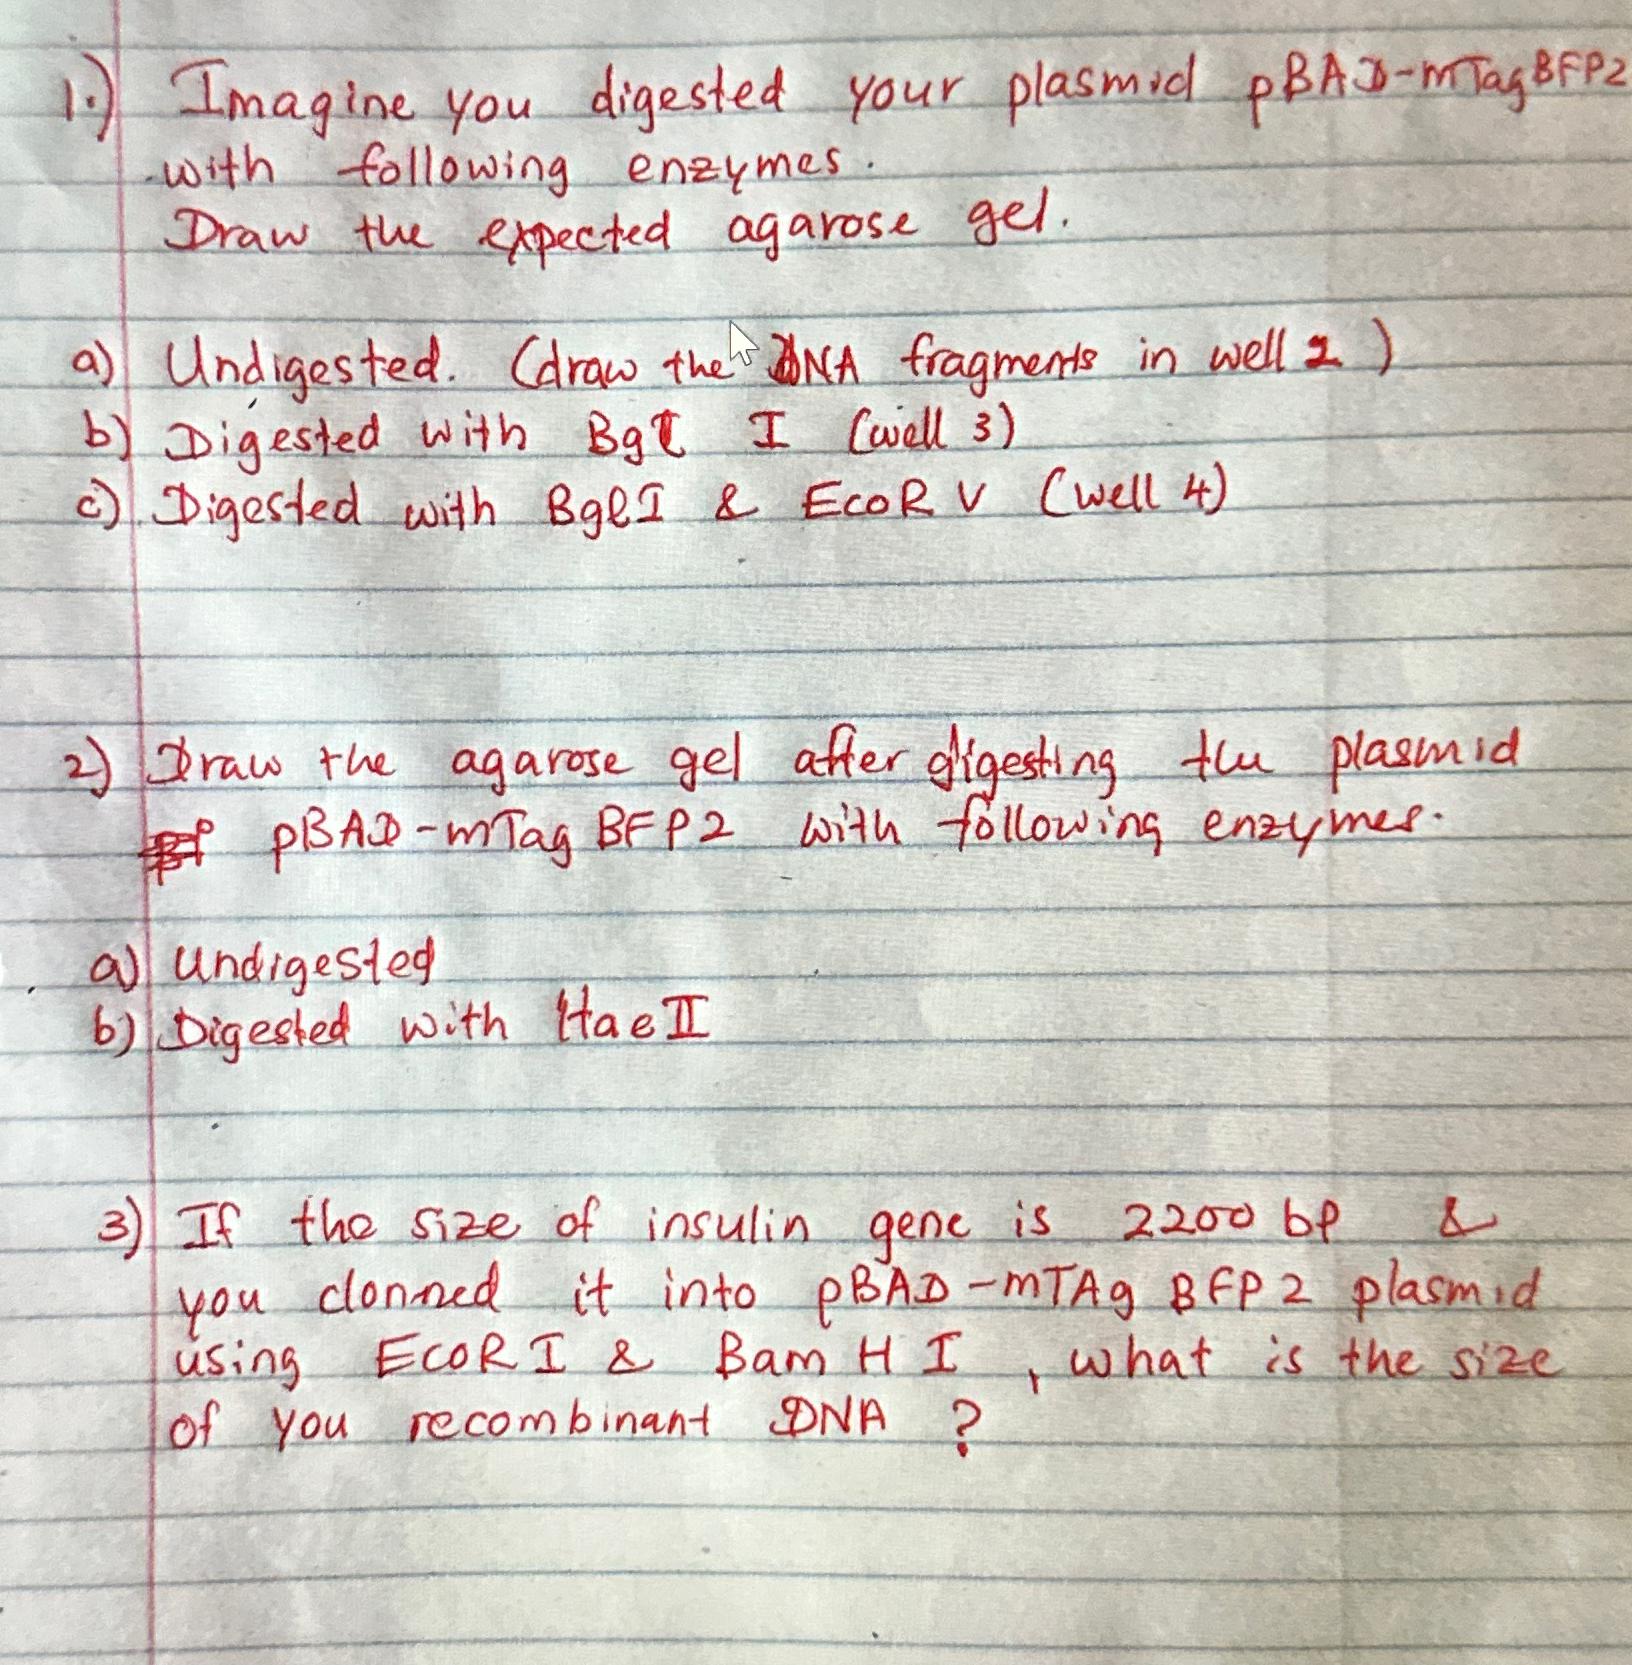 1.) Imagine you digested your plasmid pBAD-mTagBFP2
with following enzymes.
Draw the expected agarose gel.
a) Undigested. (draw the DNA fragments in well 2)
b) Digested with Bgl I (well 3)
c) Digested with BglI & EcoR V (well 4)
2) Draw the agarose gel after digesting the plasmid
pBAD-mTag BFP2 with following enzymes.
a) Undigested
b) Digested with Hae II
3) If the size of insulin gene is 2200 bp &
you clonned it into pBAD-mTAg BFP2 plasmid
using EcoR I & Bam H I, what is the size
of you recombinant DNA ?